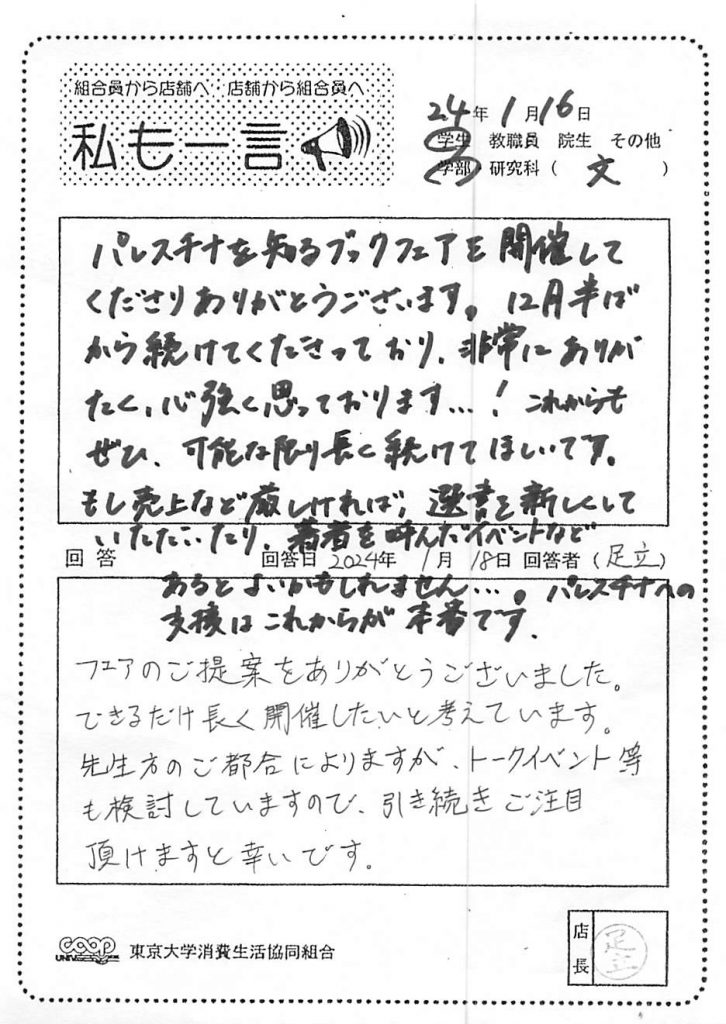 組合員から店舗へ 店舗から組合員へ
私も一言
24年1月16日
学生 教職員 院生 その他
学部・研究科（ 文 ）
パレスチナを知るブックフェアを開催して
くださりありがとうございます。12月半ば
から続けてくださっており、非常にありが
たく、心強く思っております…！これからも
ぜひ、可能な限り長く続けてほしいです。
もし売上など厳しければ、選書を新しくして
いただいたり、著者を呼んだイベントなど
あるとよいかもしれません…。パレスチナへの
支援はこれからが本番です。
回答 回答日 2024年 1月 18日 回答者（足立）
フェアのご提案をありがとうございました。
できるだけ長く開催したいと考えています。
先生方のご都合によりますが、トークイベント等
も検討していますので、引き続きご注目
頂けますと幸いです。
UNIV. coop 東京大学消費生活協同組合
店長 足立